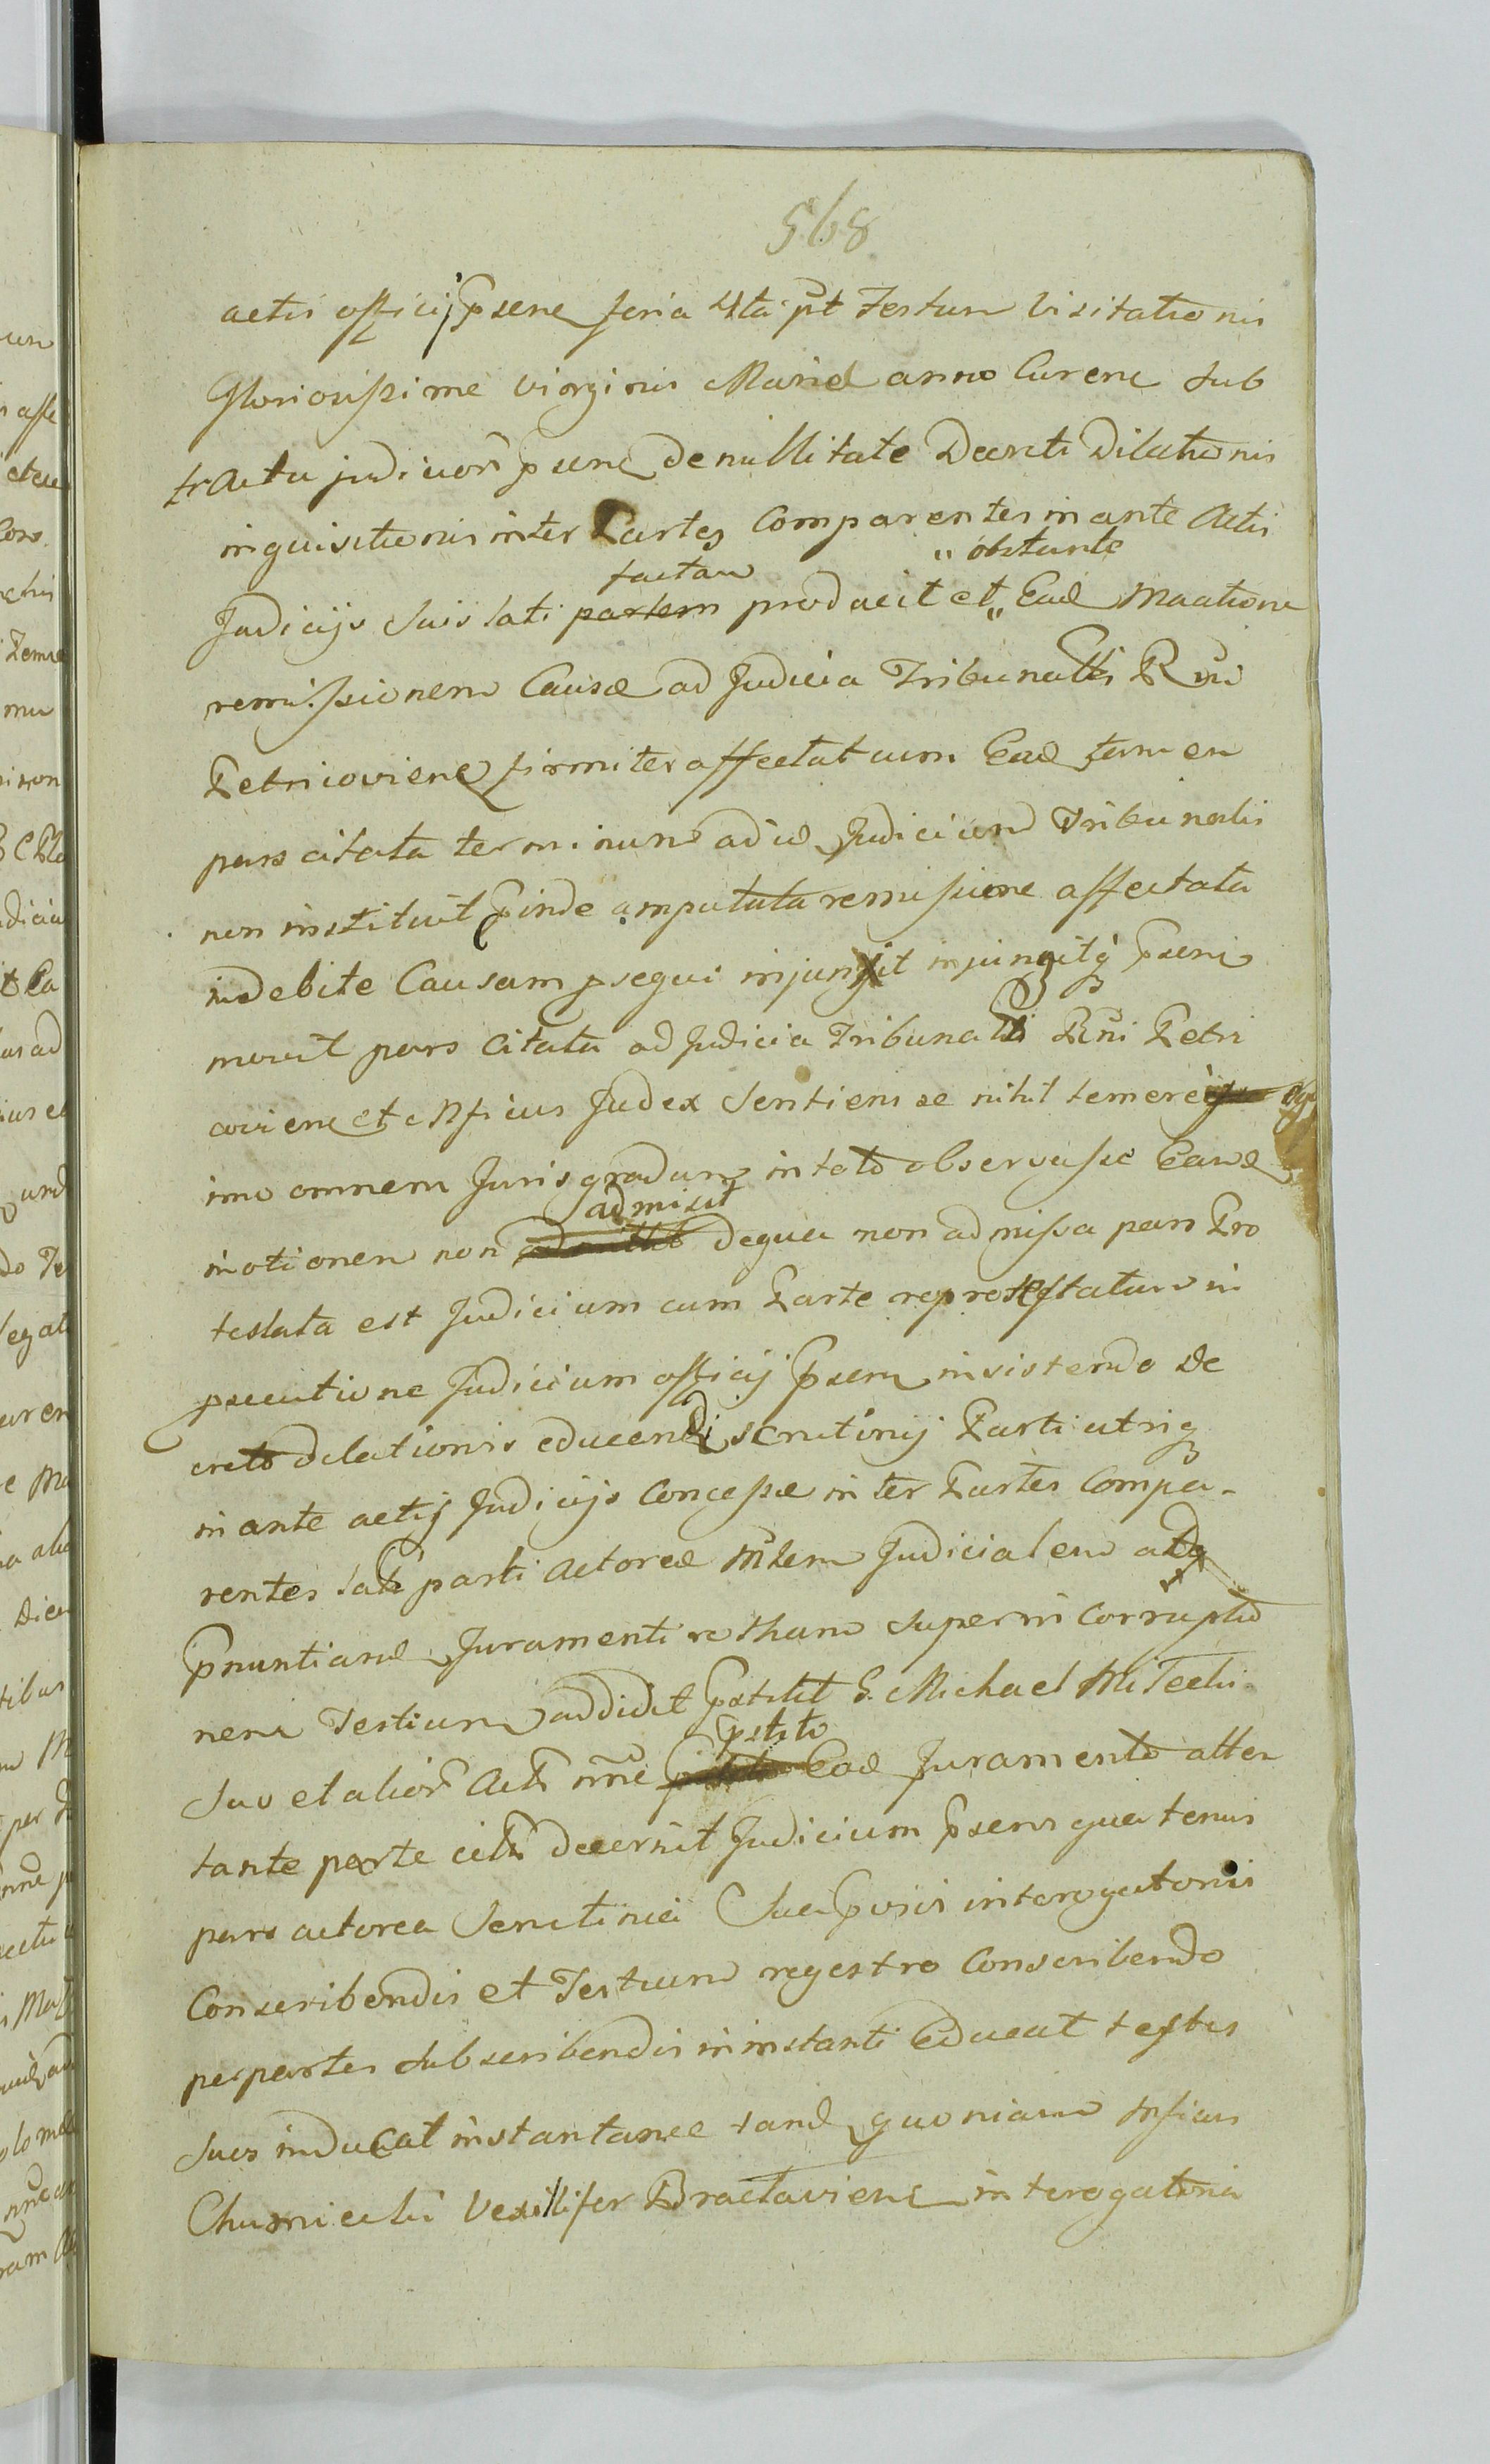 568
actis officij psene feria 4ta pt Festum Visitationis
Gloriosissime Virginis Mariæ anno Curene sub
tractu judicior psene de nullitate Decreti Dilationis
inquisitionis inter Partes Comparentes in ante Actis
factam „obstante
Judicijs suis lati partem producit et „ Ead Maatione
remissionem Causæ ad Judicia Tribunalis Rni
Petricoviene firmiter affectat cum Ead tamen
pars citata terminum ad id Judicium Tribunalis
non instituit pinde amputata remissione affectata
indebite Causam psequi injunxit injungitq psens
movit pars Citata ad Judicia Tribunalis Rni Petri
coviene et Officius Judex Sentiens se nihil temere
imo omnem Juris gradum in toto observasse Eand
admisit
motionem non admittit de qua non admissa pars Pro
testata est Judicium cum Parte reprotestatum in
psecutione Judicium officij psens insistendo De
creto dilationis educendi scrutinij Parti utriq
in ante actis Judicijs Concessæ inter Partes Compa-
rentes lati parti Actoreæ Mlem Judicialem adq
pnuntiand Juramenti rotham super in Corruptio
nem Testium addidit pstitit G. Michael
pstito
Suo et alior Act nne pstito Ead Juramento atten
tante parte citta decernit Judicium psens quatenus
pars actorea Scrutinia Sua pvisis interogatorijs
Conscribendis et Testium regestro Conscribendo
per partes subscribendis in instanti Educat testes
suos inducat instantanee tand quoniam Mficus
Chumiecki Vexillifer Braclaviene interogatoria